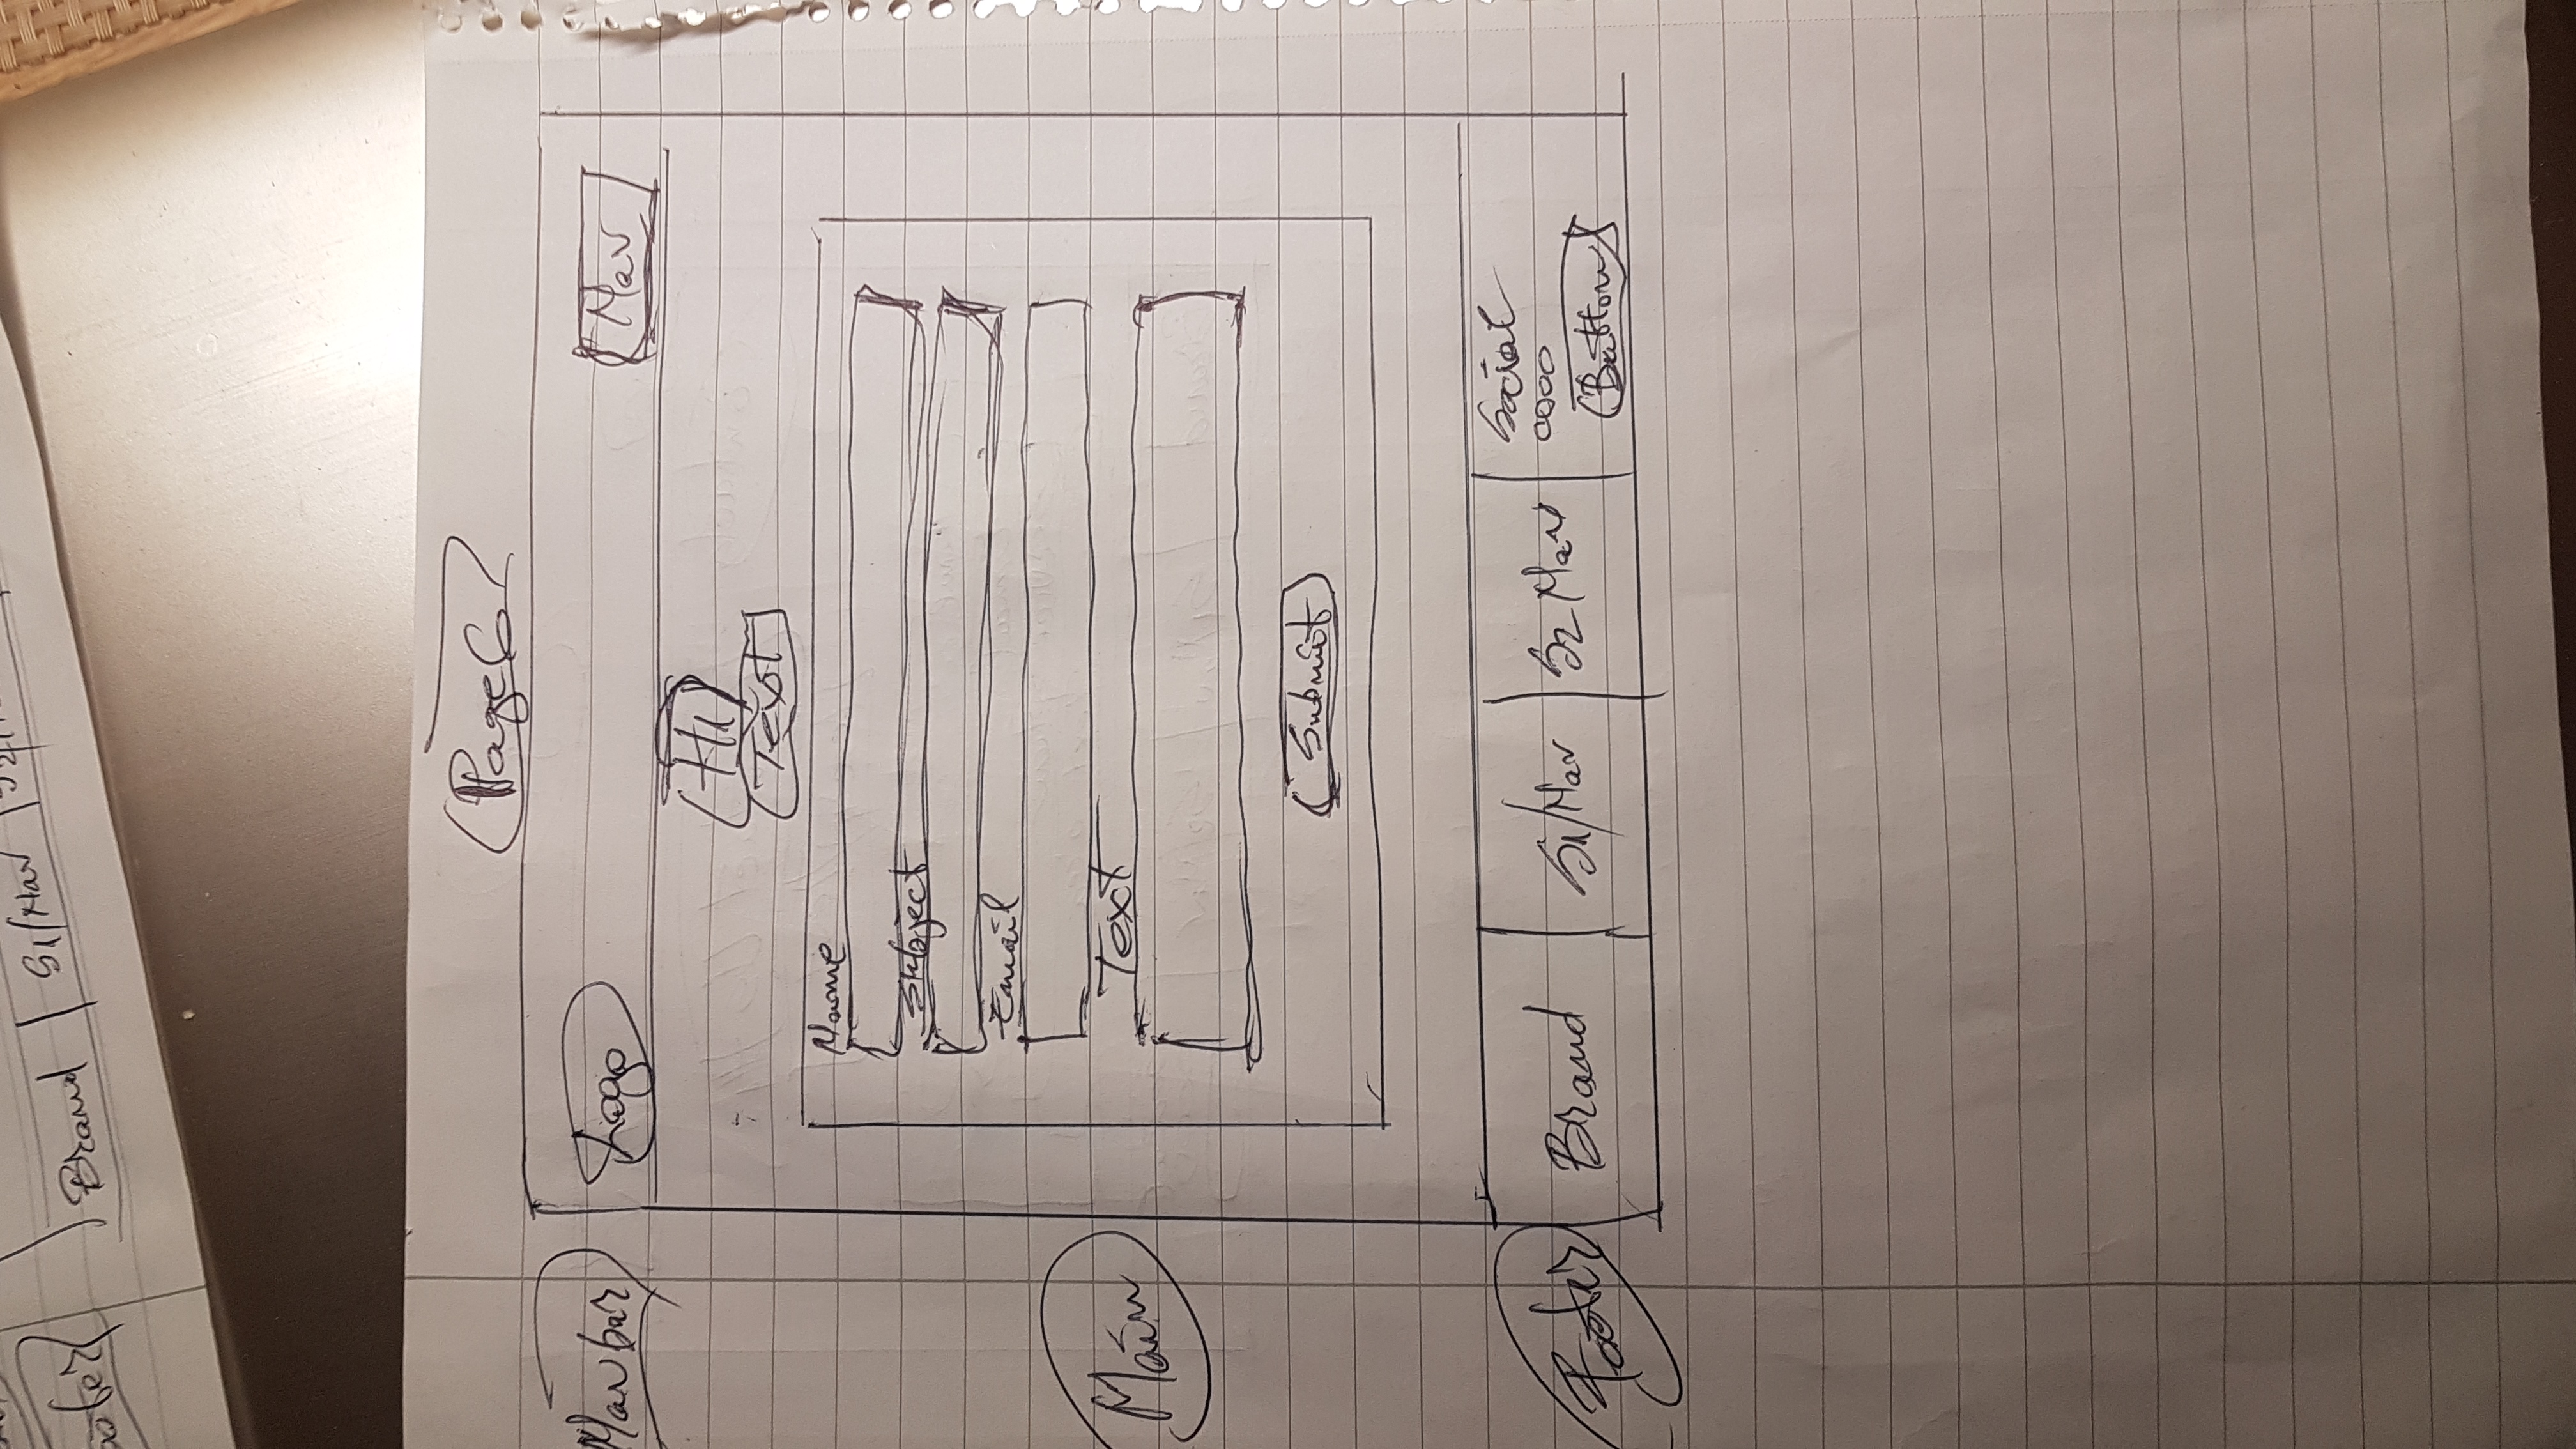 Brand | S1/Nav
Page 6
Navbar
Logo
Nav
H1
Text
Name
Subject
Email
Text
Main
Submit
Footer
Brand
S1/Nav
S2 Nav
Social
Button